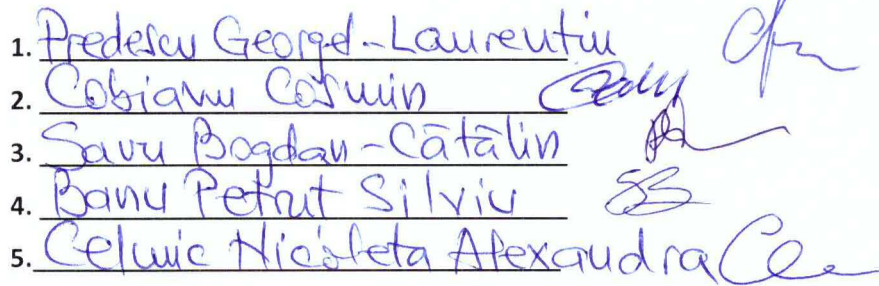 1. Predescu Georgel-Laurentiu
2. Cobianu Cosmin
3. Savu Bogdan-Cătălin
4. Banu Petrut Silviu
5. Celmic Nicoleta Alexandra